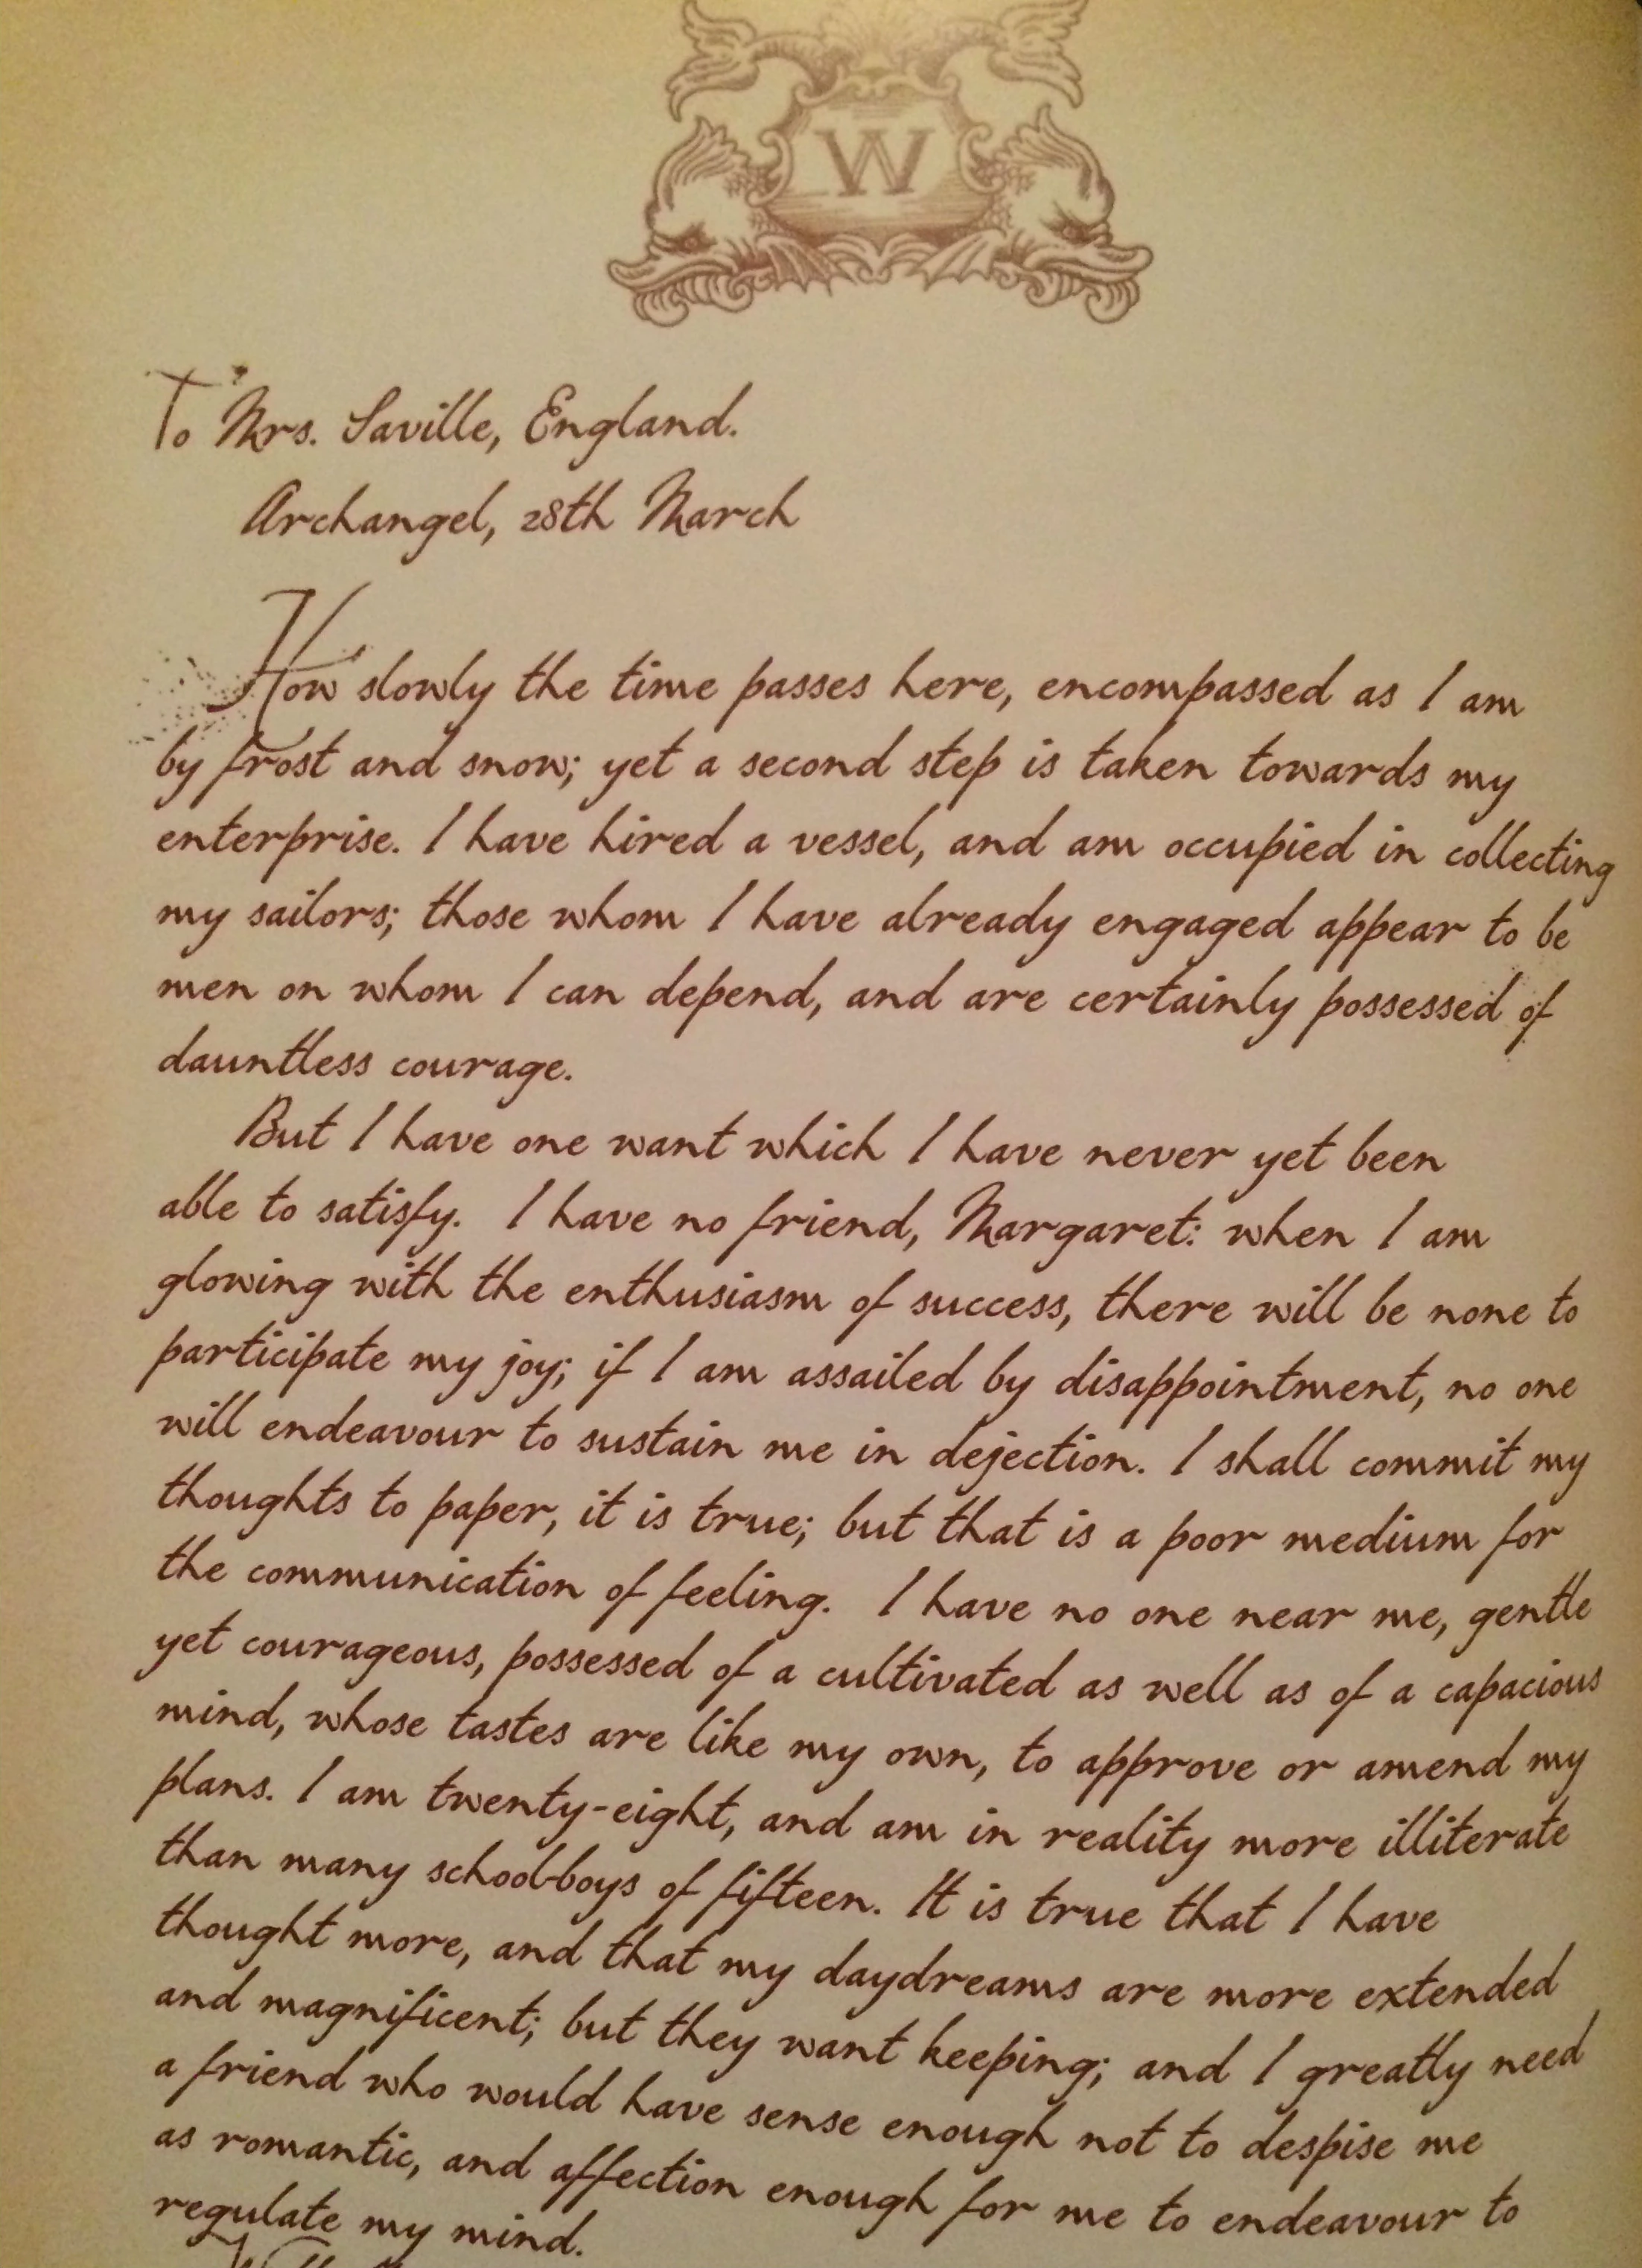 W
To Mrs. Saville, England.
Archangel, 28th March
How slowly the time passes here, encompassed as I am
by frost and snow; yet a second step is taken towards my
enterprise. I have hired a vessel, and am occupied in collecting
my sailors; those whom I have already engaged appear to be
men on whom I can depend, and are certainly possessed of
dauntless courage.
But I have one want which I have never yet been
able to satisfy. I have no friend, Margaret: when I am
glowing with the enthusiasm of success, there will be none to
participate my joy; if I am assailed by disappointment, no one
will endeavour to sustain me in dejection. I shall commit my
thoughts to paper, it is true; but that is a poor medium for
the communication of feeling. I have no one near me, gentle
yet courageous, possessed of a cultivated as well as of a capacious
mind, whose tastes are like my own, to approve or amend my
plans. I am twenty-eight, and am in reality more illiterate
than many school-boys of fifteen. It is true that I have
thought more, and that my daydreams are more extended
and magnificent; but they want keeping; and I greatly need
a friend who would have sense enough not to despise me
as romantic, and affection enough for me to endeavour to
regulate my mind.